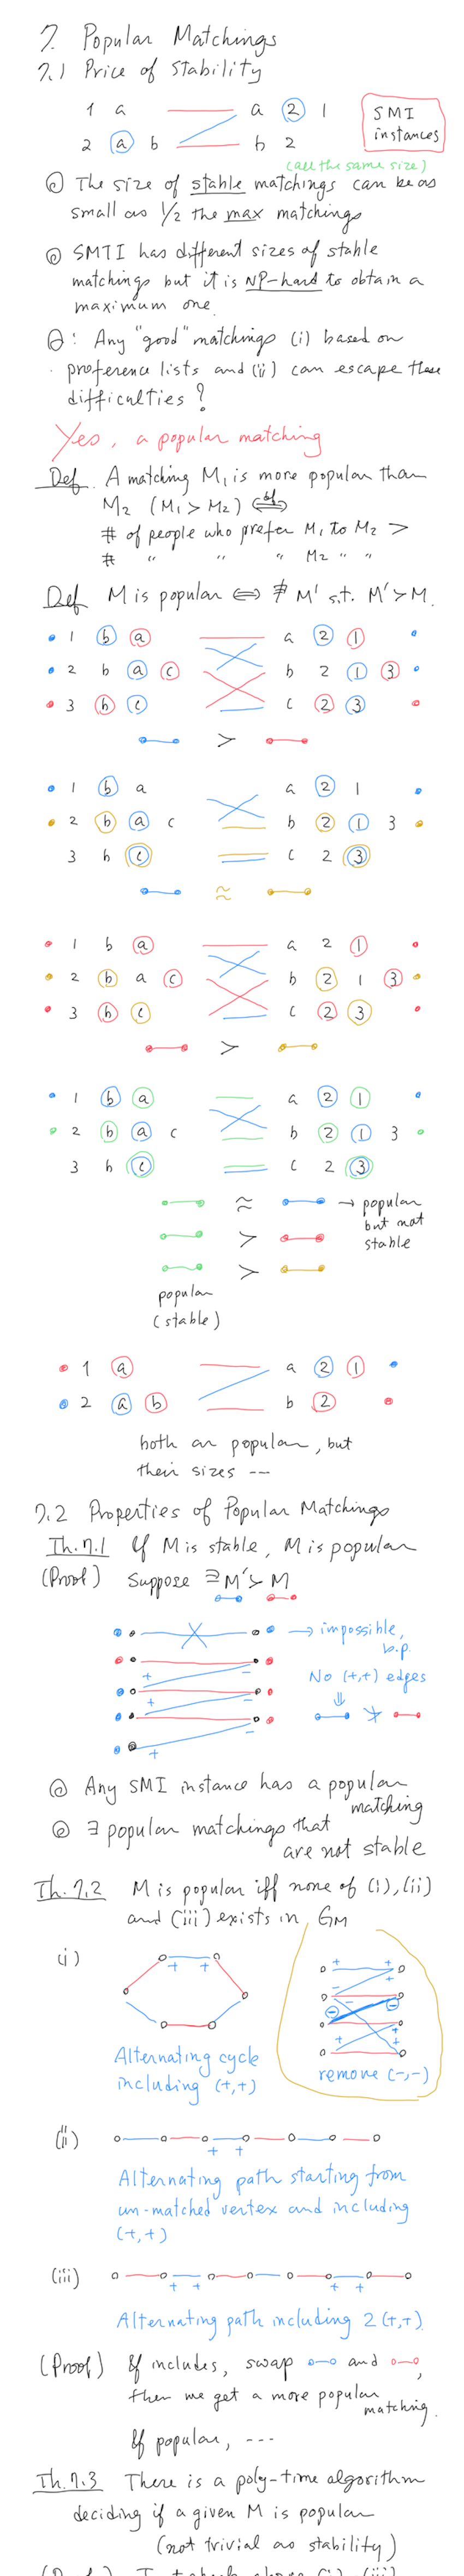 7. Popular Matchings
7.1 Price of Stability
1 a a 2 1 SMI
2 a b b 2 instances
(all the same size)
◎ The size of stable matchings can be as
small as 1/2 the max matchings
◎ SMTI has different sizes of stable
matchings but it is NP-hard to obtain a
maximum one.
Q: Any "good" matchings (i) based on
preference lists and (ii) can escape these
difficulties?
Yes, a popular matching
Def. A matching M1 is more popular than
M2 (M1 > M2) ⇔def
# of people who prefer M1 to M2 >
# " " " M2 " "
Def M is popular ⇔ ∄ M' s.t. M' > M.
1 b a a 2 1
2 b a c b 2 1 3
3 b c c 2 3
>
1 b a a 2 1
2 b a c b 2 1 3
3 b c c 2 3
≈
1 b a a 2 1
2 b a c b 2 1 3
3 b c c 2 3
>
1 b a a 2 1
2 b a c b 2 1 3
3 b c c 2 3
≈ → popular
but not
> stable
>
popular
(stable)
1 a a 2 1
2 a b b 2
both are popular, but
their sizes ---
7.2 Properties of Popular Matchings
Th.7.1 If M is stable, M is popular
(Proof) Suppose ∃M' > M
→ impossible,
b.p.
+ - No (+,+) edges
+ - ⇓
+ -
◎ Any SMI instance has a popular
matching
◎ ∃ popular matchings that
are not stable
Th.7.2 M is popular iff none of (i), (ii)
and (iii) exists in GM
(i) + +
Alternating cycle
including (+,+)
+ +
- +
- -
+ +
+
remove (-,-)
(ii) + +
Alternating path starting from
un-matched vertex and including
(+,+)
(iii) + + + +
Alternating path including 2 (+,+).
(Proof) If includes, swap and ,
then we get a more popular
matching.
If popular, ---
Th.7.3 There is a poly-time algorithm
deciding if a given M is popular
(not trivial as stability)